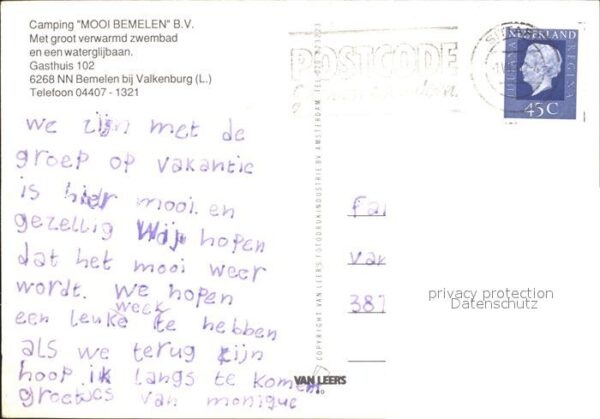 Camping "MOOI BEMELEN" B.V.
Met groot verwarmd zwembad
en een waterglijbaan.
Gasthuis 102
6268 NN Bemelen bij Valkenburg (L.)
Telefoon 04407 - 1321
POSTCODE
NEDERLAND
JULIANA
REGINA
45C
we zijn met de
groep op vakantie
is hier mooi en
gezellig Wij hopen
dat het mooi weer
wordt. we hopen
een leuke week te hebben
als we terug zijn
hoop ik langs te komen
groetjes van monique
COPYRIGHT VAN LEERS FOTODRUKINDUSTRIE BV AMSTERDAM, TEL.
VAN LEERS
Fa
van
387
privacy protection
Datenschutz